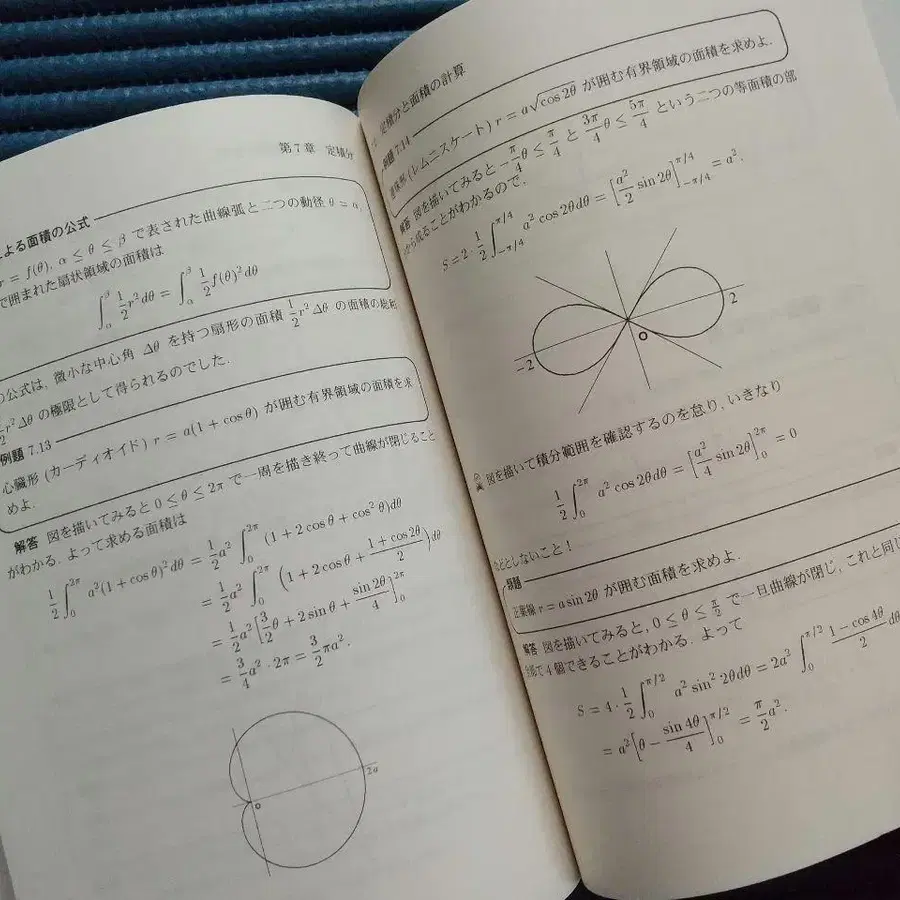 第7章 定積分
よる面積の公式
r = f(θ), α ≤ θ ≤ β で表された曲線弧と二つの動径 θ = α,
で囲まれた扇状領域の面積は
∫_α^β 1/2 r² dθ = ∫_α^β 1/2 f(θ)² dθ
の公式は, 微小な中心角 Δθ を持つ扇形の面積 1/2 r² Δθ の面積の総和
1/2 r² Δθ の極限として得られるのでした.
例題 7.13
心臓形 (カーディオイド) r = a(1 + cos θ) が囲む有界領域の面積を求
めよ.
解答 図を描いてみると 0 ≤ θ ≤ 2π で一周を描き終って曲線が閉じること
がわかる. よって求める面積は
1/2 ∫_0^{2π} a²(1 + cos θ)² dθ = 1/2 a² ∫_0^{2π} (1 + 2 cos θ + cos² θ) dθ
= 1/2 a² ∫_0^{2π} (1 + 2 cos θ + (1 + cos 2θ)/2) dθ
= 1/2 a² [3/2 θ + 2 sin θ + sin 2θ/4]_0^{2π}
= 3/4 a² · 2π = 3/2 πa².
O
2a
定積分と面積の計算
例題 7.14
(レムニスケート) r = a√cos 2θ が囲む有界領域の面積を求めよ.
解答 図を描いてみると −π/4 θ ≤ π/4 と 3π/4 θ ≤ 5π/4 という二つの等面積の部
から成ることがわかるので,
S = 2 · 1/2 ∫_{−π/4}^{π/4} a² cos 2θ dθ = [a²/2 sin 2θ]_{−π/4}^{π/4} = a².
−2
O
2
図を描いて積分範囲を確認するのを怠り, いきなり
1/2 ∫_0^{2π} a² cos 2θ dθ = [a²/4 sin 2θ]_0^{2π} = 0
などとしないこと!
正葉線 r = a sin 2θ が囲む面積を求めよ.
解答 図を描いてみると, 0 ≤ θ ≤ π/2 で一旦曲線が閉じ, これと同じ
全部で 4 個できることがわかる. よって
S = 4 · 1/2 ∫_0^{π/2} a² sin² 2θ dθ = 2a² ∫_0^{π/2} (1 − cos 4θ)/2 dθ
= a² [θ − sin 4θ/4]_0^{π/2} = π/2 a².